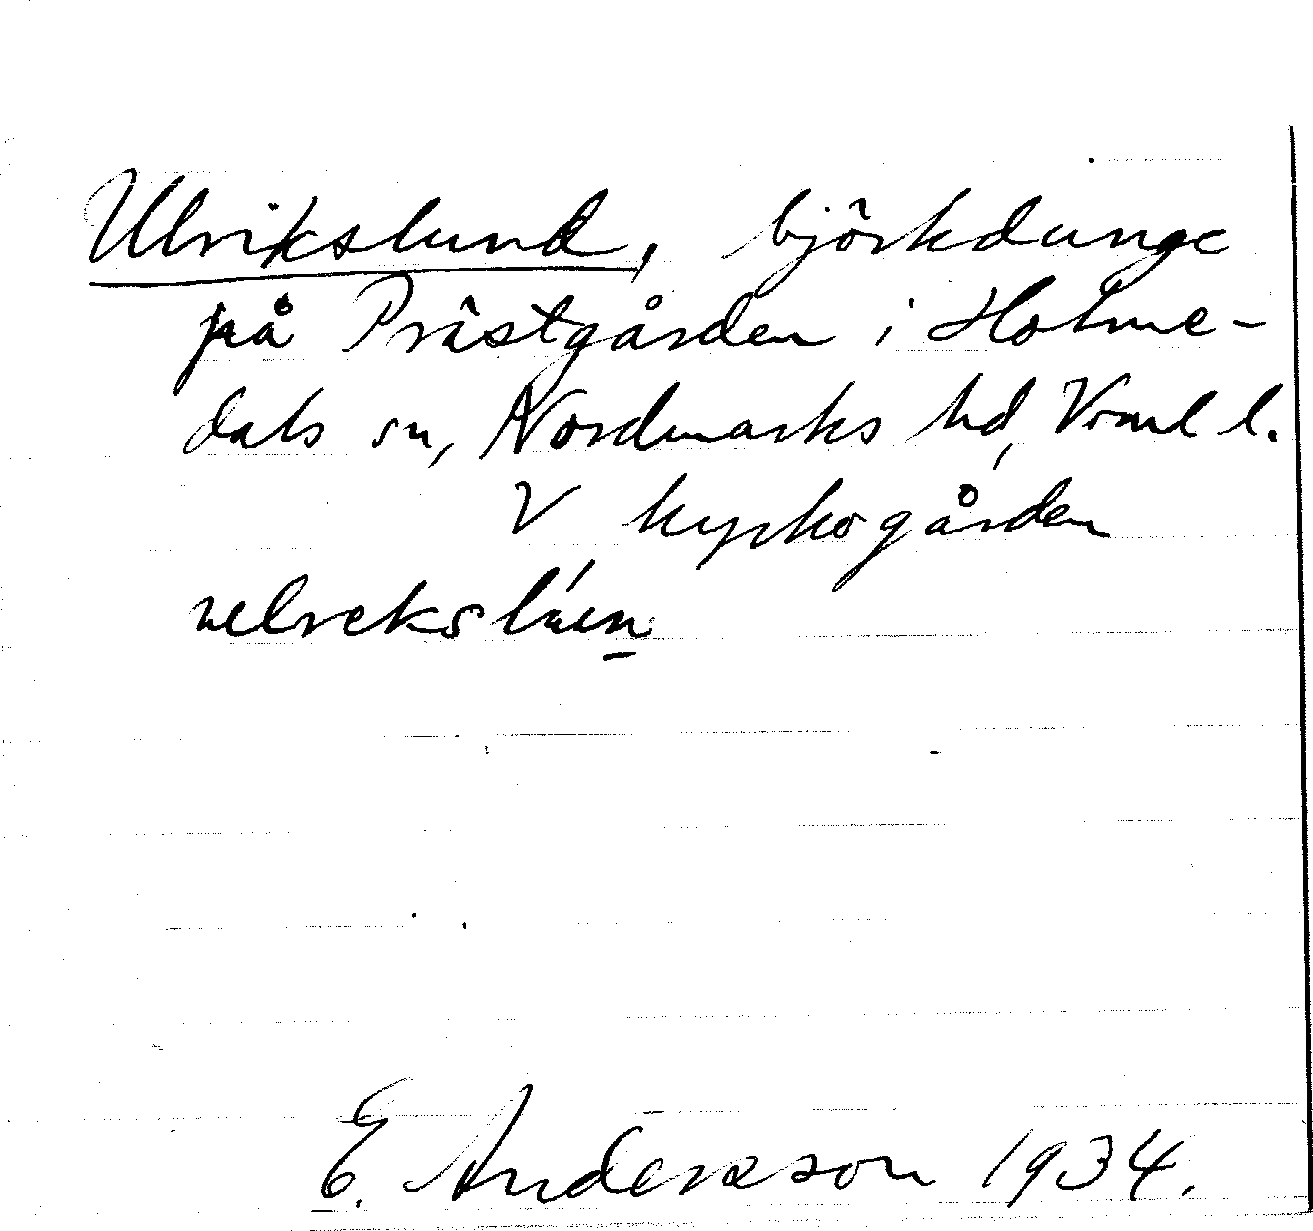 Ulrikslund, björkdunge
på Prästgården i Holme-
dals sn, Nordmarks hd, Vrml l.
V kyrkogården
E. Andersson 1934.